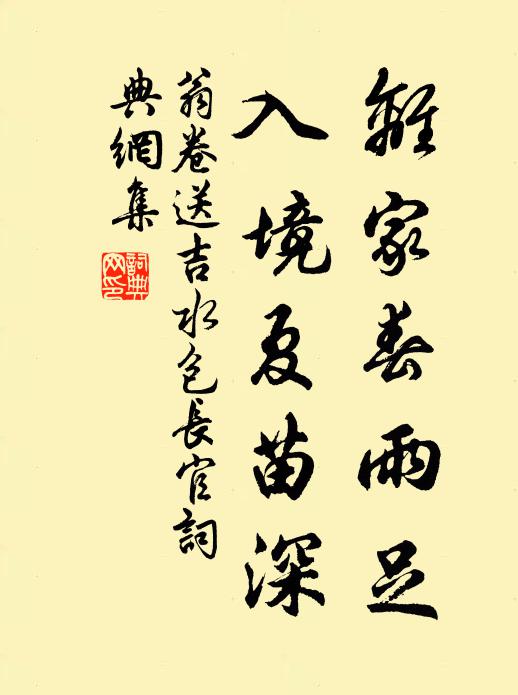 離家春雨足
入境夏苗深
翁卷送吉水包長官詞
典網集
詞典
网印